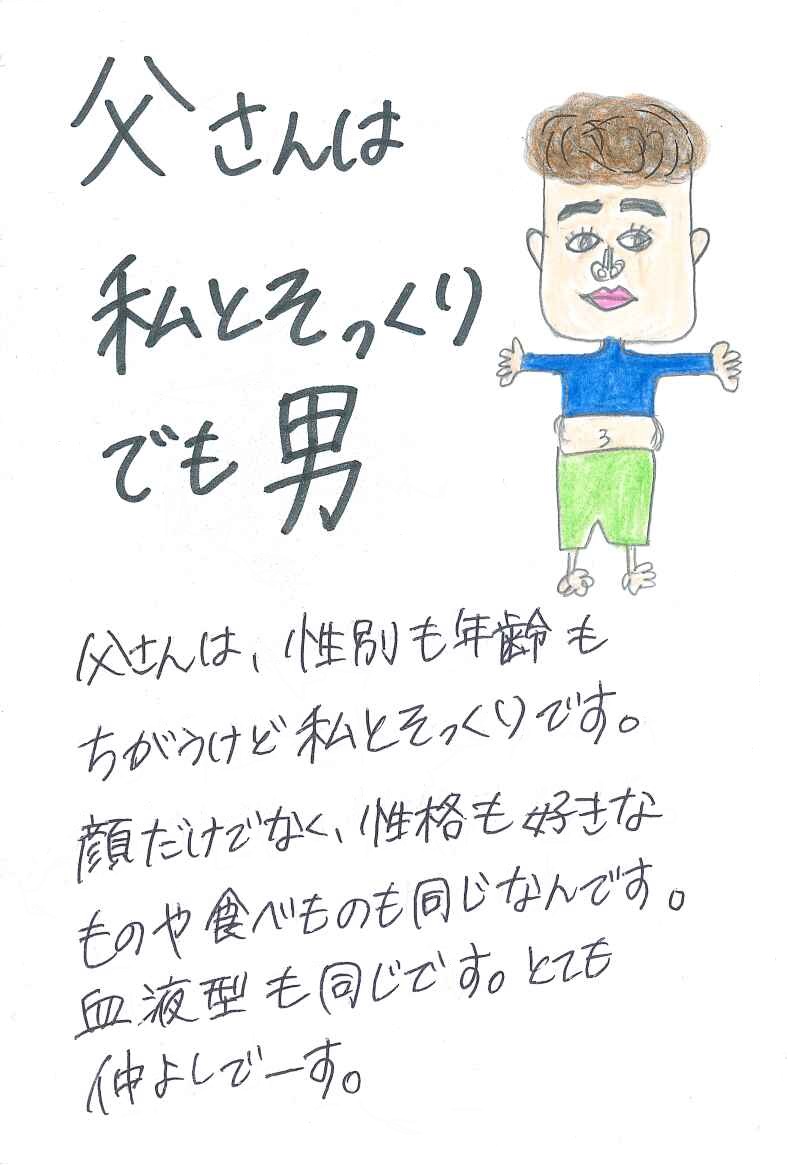 父さんは
私とそっくり
でも男
父さんは、性別も年齢も
ちがうけど私とそっくりです。
顔だけでなく、性格も好きな
ものや食べものも同じなんです。
血液型も同じです。とても
仲よしでーす。